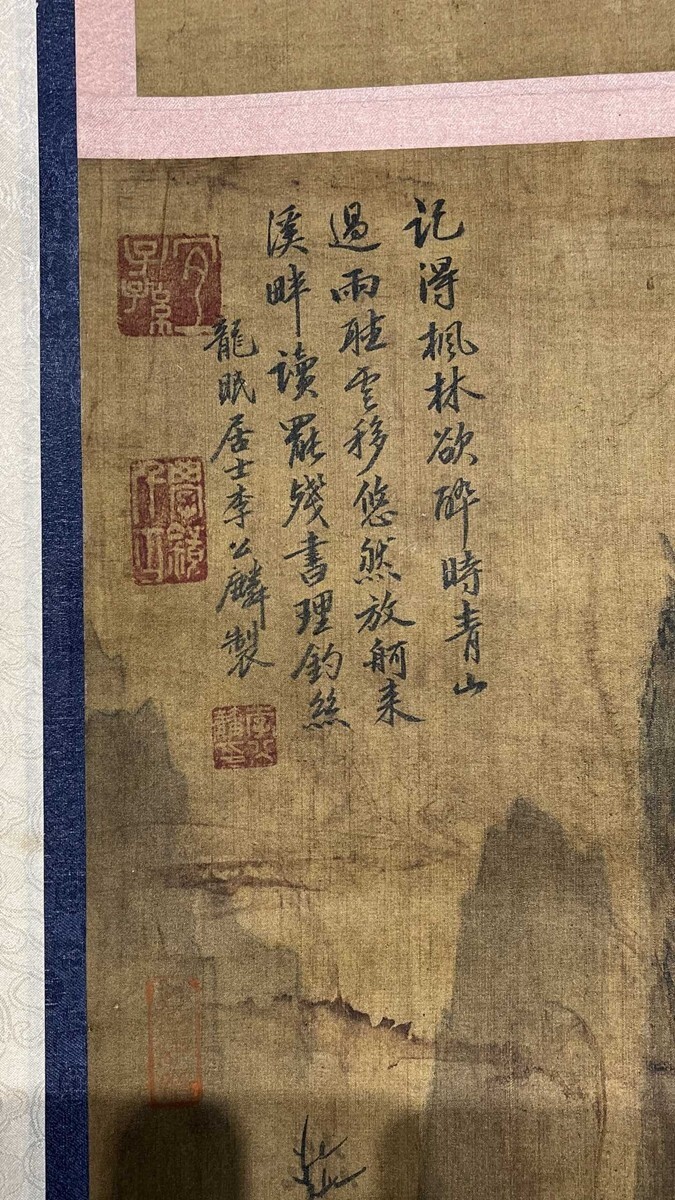 記得楓林欲醉時青山
過雨陡雲移悠然放舸来
溪畔讀罷殘書理釣絲
龍眠居士李公麟製